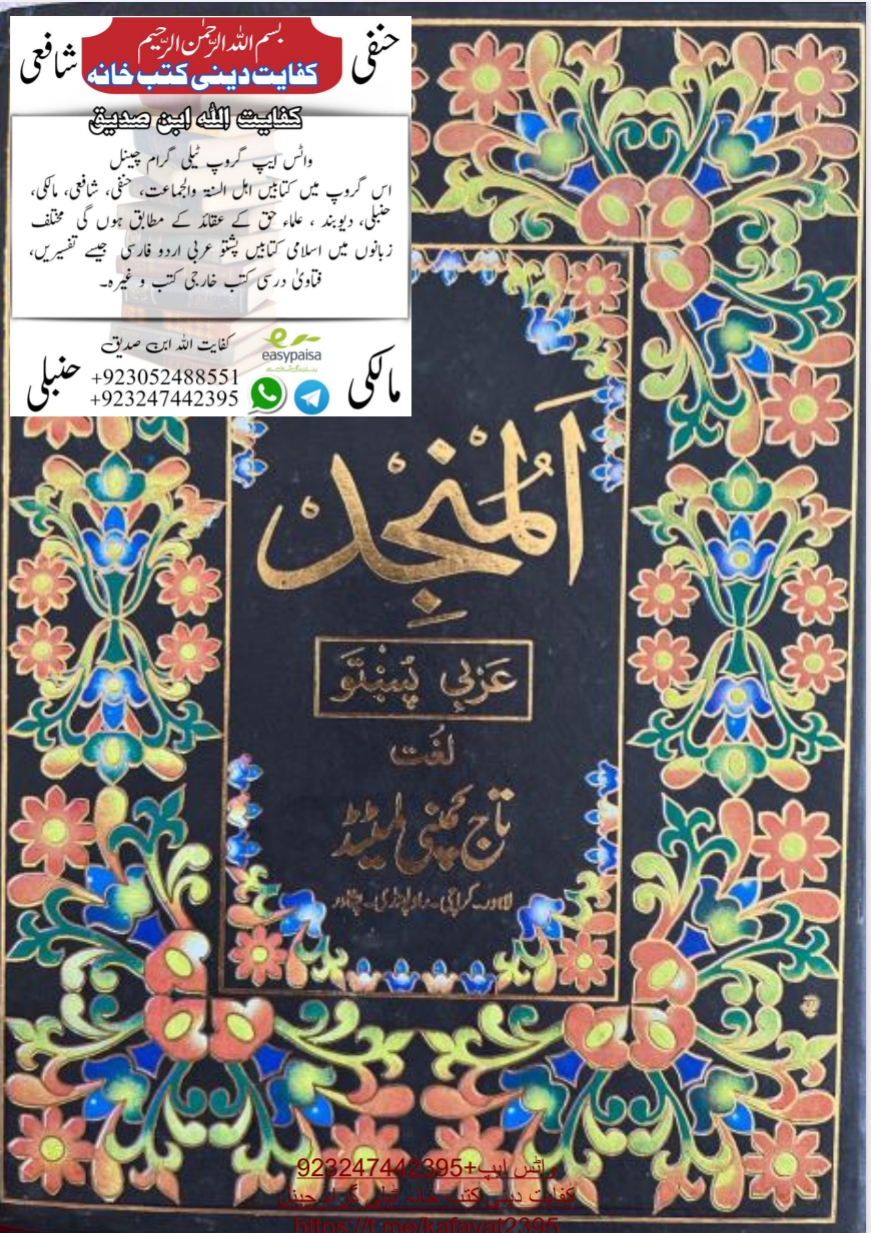 حنفی
بسم اللہ الرحمٰن الرحیم
شافعی
کفایت دینی کتب خانہ
کفایت اللہ ابن صدیق
واٹس ایپ گروپ ٹیلی گرام چینل
اس گروپ میں کتابیں اہل السنۃ والجماعت، حنفی، شافعی، مالکی،
حنبلی، دیوبند ، علماء حق کے عقائد کے مطابق ہوں گی مختلف
زبانوں میں اسلامی کتابیں پشتو عربی اردو فارسی جیسے تفسیریں،
فتاویٰ درسی کتب خارجی کتب و غیرہ۔
کفایت اللہ ابن صدیق
easypaisa
مالکی
+923052488551
+923247442395
حنبلی
اَلمُنْجِد
عَرَبي پُښتَو
لُغت
تاج کمپنی لمیٹڈ
لاہور۔ کراچی۔ راولپنڈی۔ پشاور
واٹس ایپ+923247442395
کفایت دینی کتب خانہ ٹیلی گرام چینل
https://t.me/kafayat2395